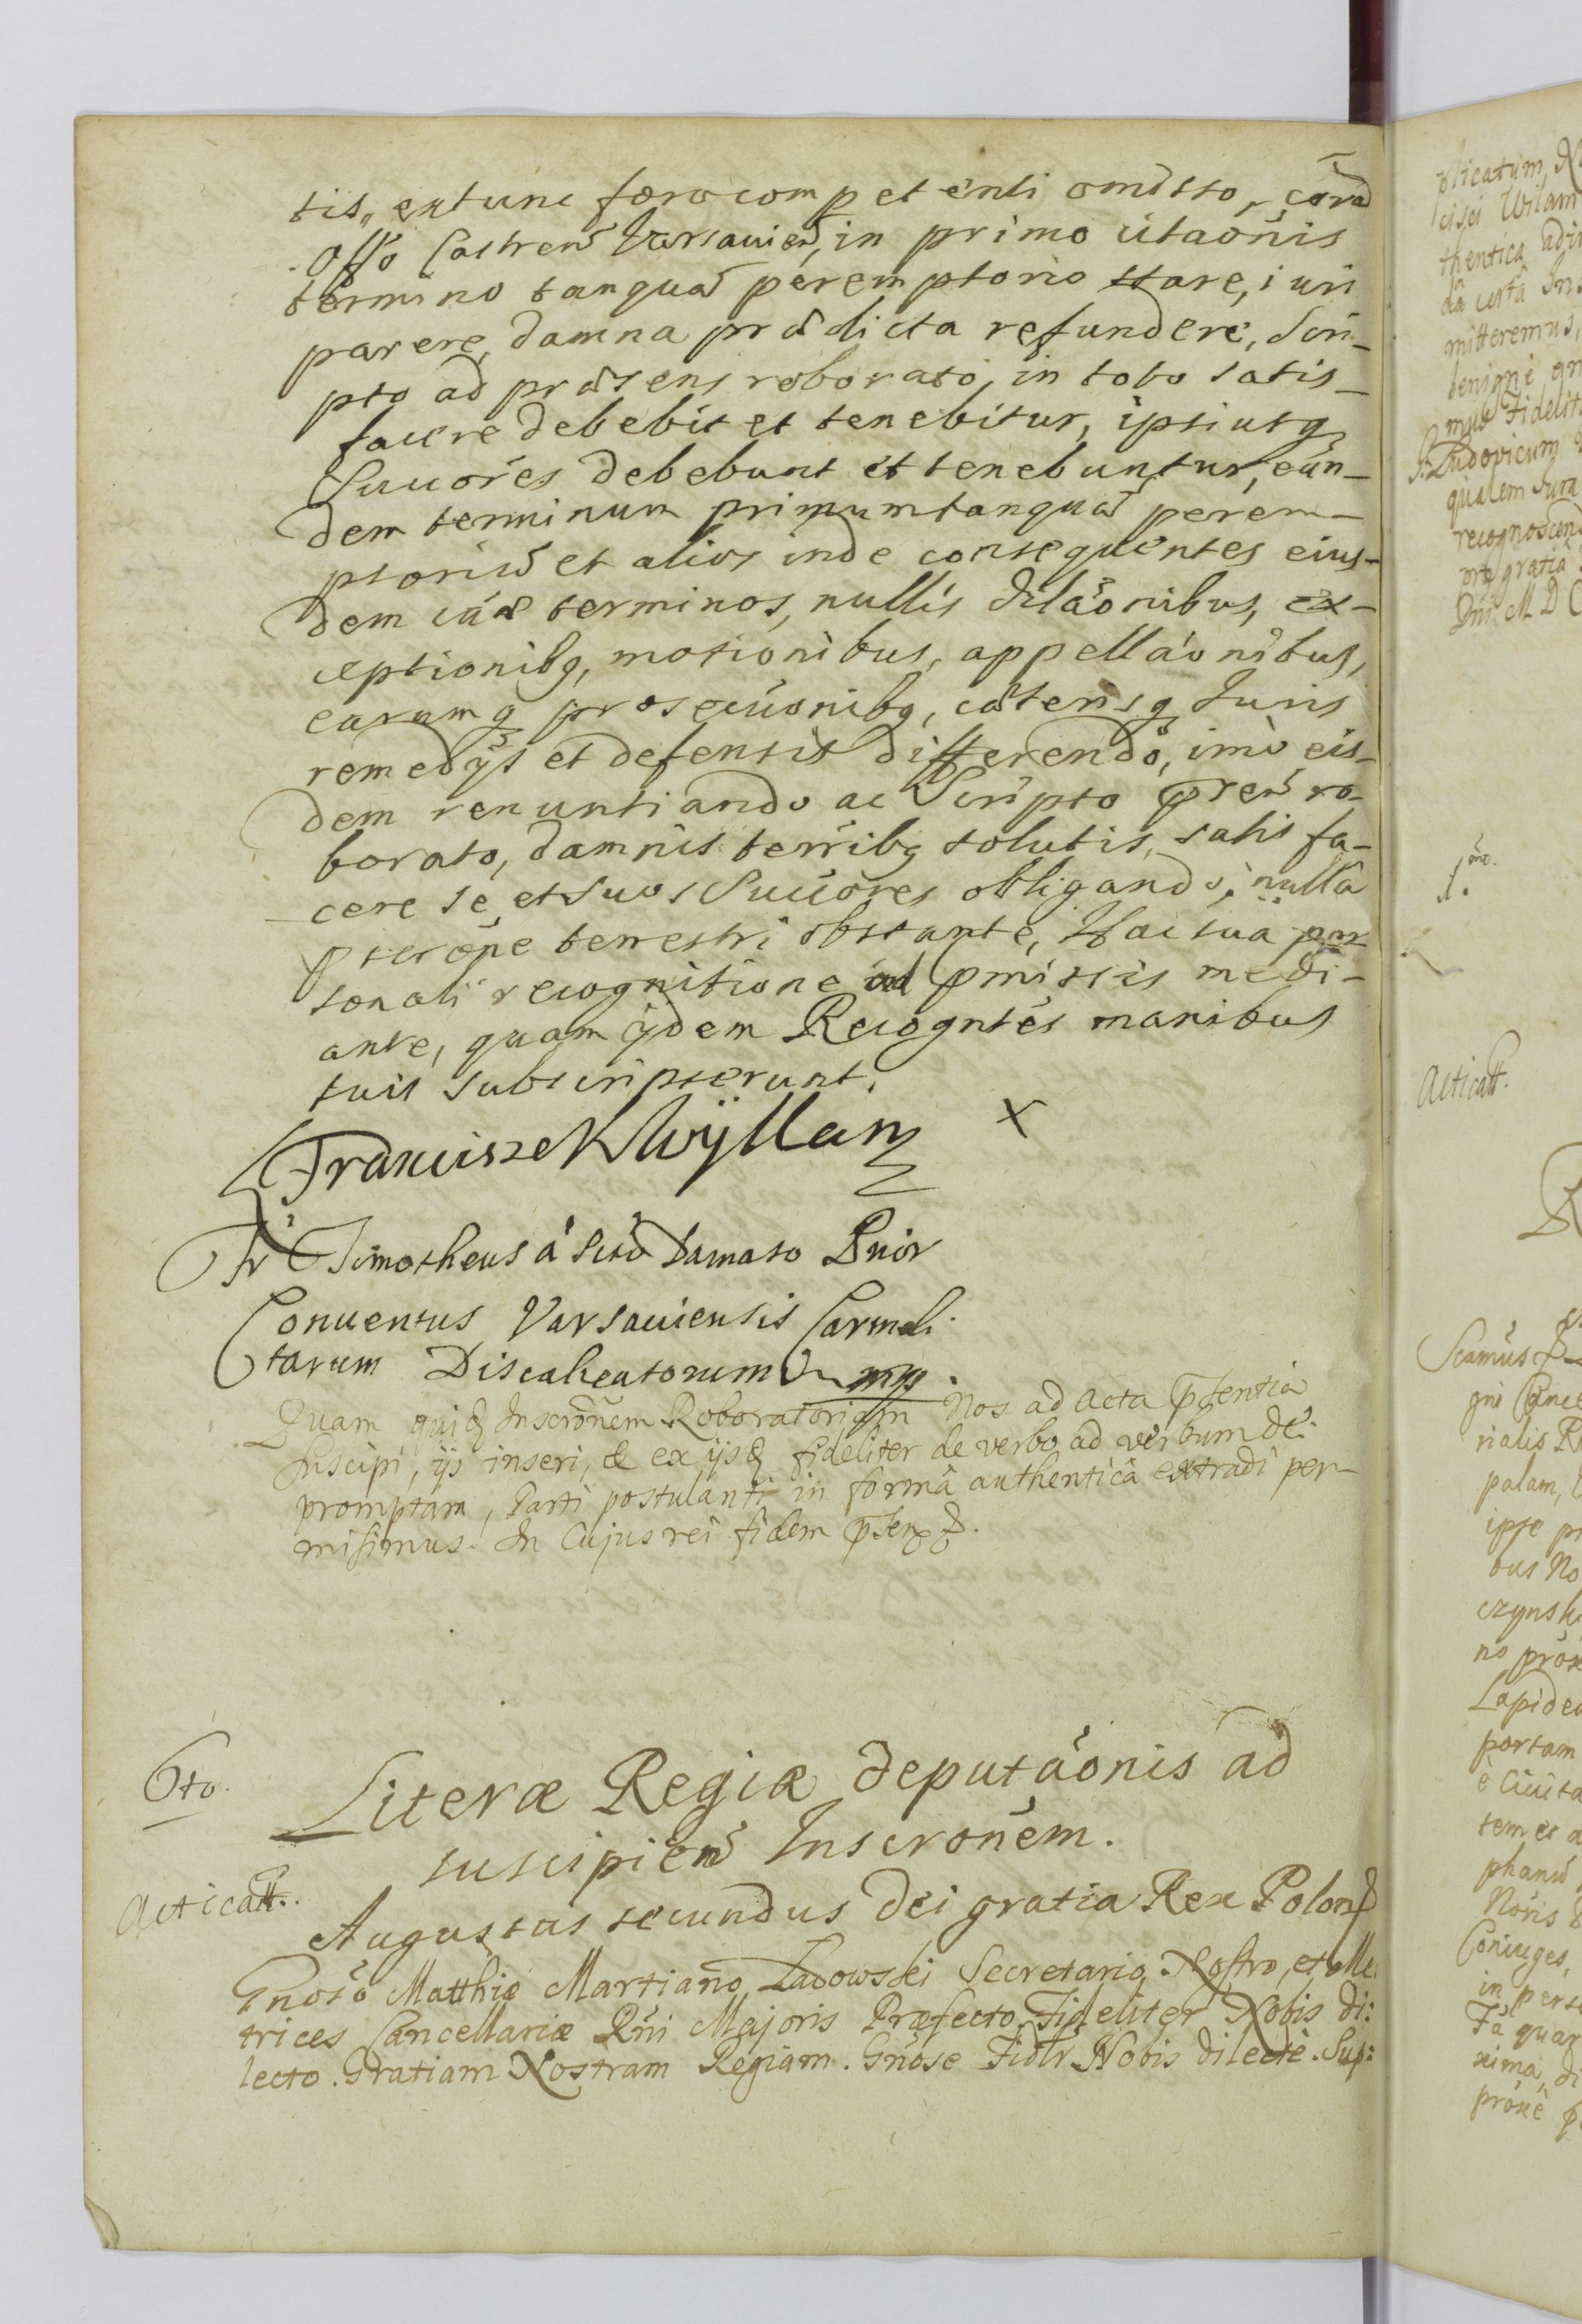 tis, extunc foro competenti omisso, corã
Offo Castren Varsavien, in primo citaõnis
termino tanquã peremptorio stare, iuri
parere, damna prædicta refundere, Scri-
pto ad præsens roborato, in toto satis-
facere debebit et tenebitur, ipsiusq
Succores debebunt et tenebuntur, eun-
dem terminum primum tanquã perem-
ptoriũ et alios inde consequentes eius-
dem cãæ terminos, nullis dilaõnibus, ex-
ceptionibq, motionibus, appellaõnibus,
earumq prosecuõnibq, cæterisq Juris
remedÿs et defensis differendo, imò eis-
dem renuntiando ac Scripto pren ro-
borato, damnis terribq solutis, satis fa-
cere se, et suos Succores obligando, nullâ
pscrõpne terrestri obstante, Hac sua per
sonali recognitione ad pmissis medi-
ante, quam ijdem Recogntes manibus
suis subscripserunt.
Franciszek Wÿllan x
Fr Timotheus á Scto Damaso Prior
Conventus Varsaviensis Carmeli
tarum Discalceatorum mp.
Quam quidẽ Inscrõnem Roboratoriam Nos ad Acta pñsentia
suscipi, ijs inseri, & ex ijsdẽ fideliter de verbo ad verbum de:
promptam, Parti postulanti in formâ authenticâ extradi per-
misimus. In Cujus rei fidem
6to.
Literæ Regiæ deputaõnis ad
suscipien Inscronẽm.
Acticatt.
Augustus secundus Dei gratia Rex Polon
Gnoso Matthiæ Martiano Ladowski Secretario Nostro, et Me
trices Cancellariæ Rñi Majoris Præfecto, Fideliter Nobis di:
lecto. Gratiam Nostram Regiam. Gnose Fidlr Nobis dilecte. Sup:
plicatum
cisci Wilam
thentica
mitteremus,
benigne
Fidelit
Ludovicum
qualem
recognoscend
gratiã
Dni M D C
1mo.
Acticatt.
Scamus
gni Cance
rialis R
palam,
ipse pr
bus No
czynski
no prox
Lapidea
portam
è Civita
tem et a
phanũ
Noris
Coniuges,
in pers
Fa quar
xima, di
proxè